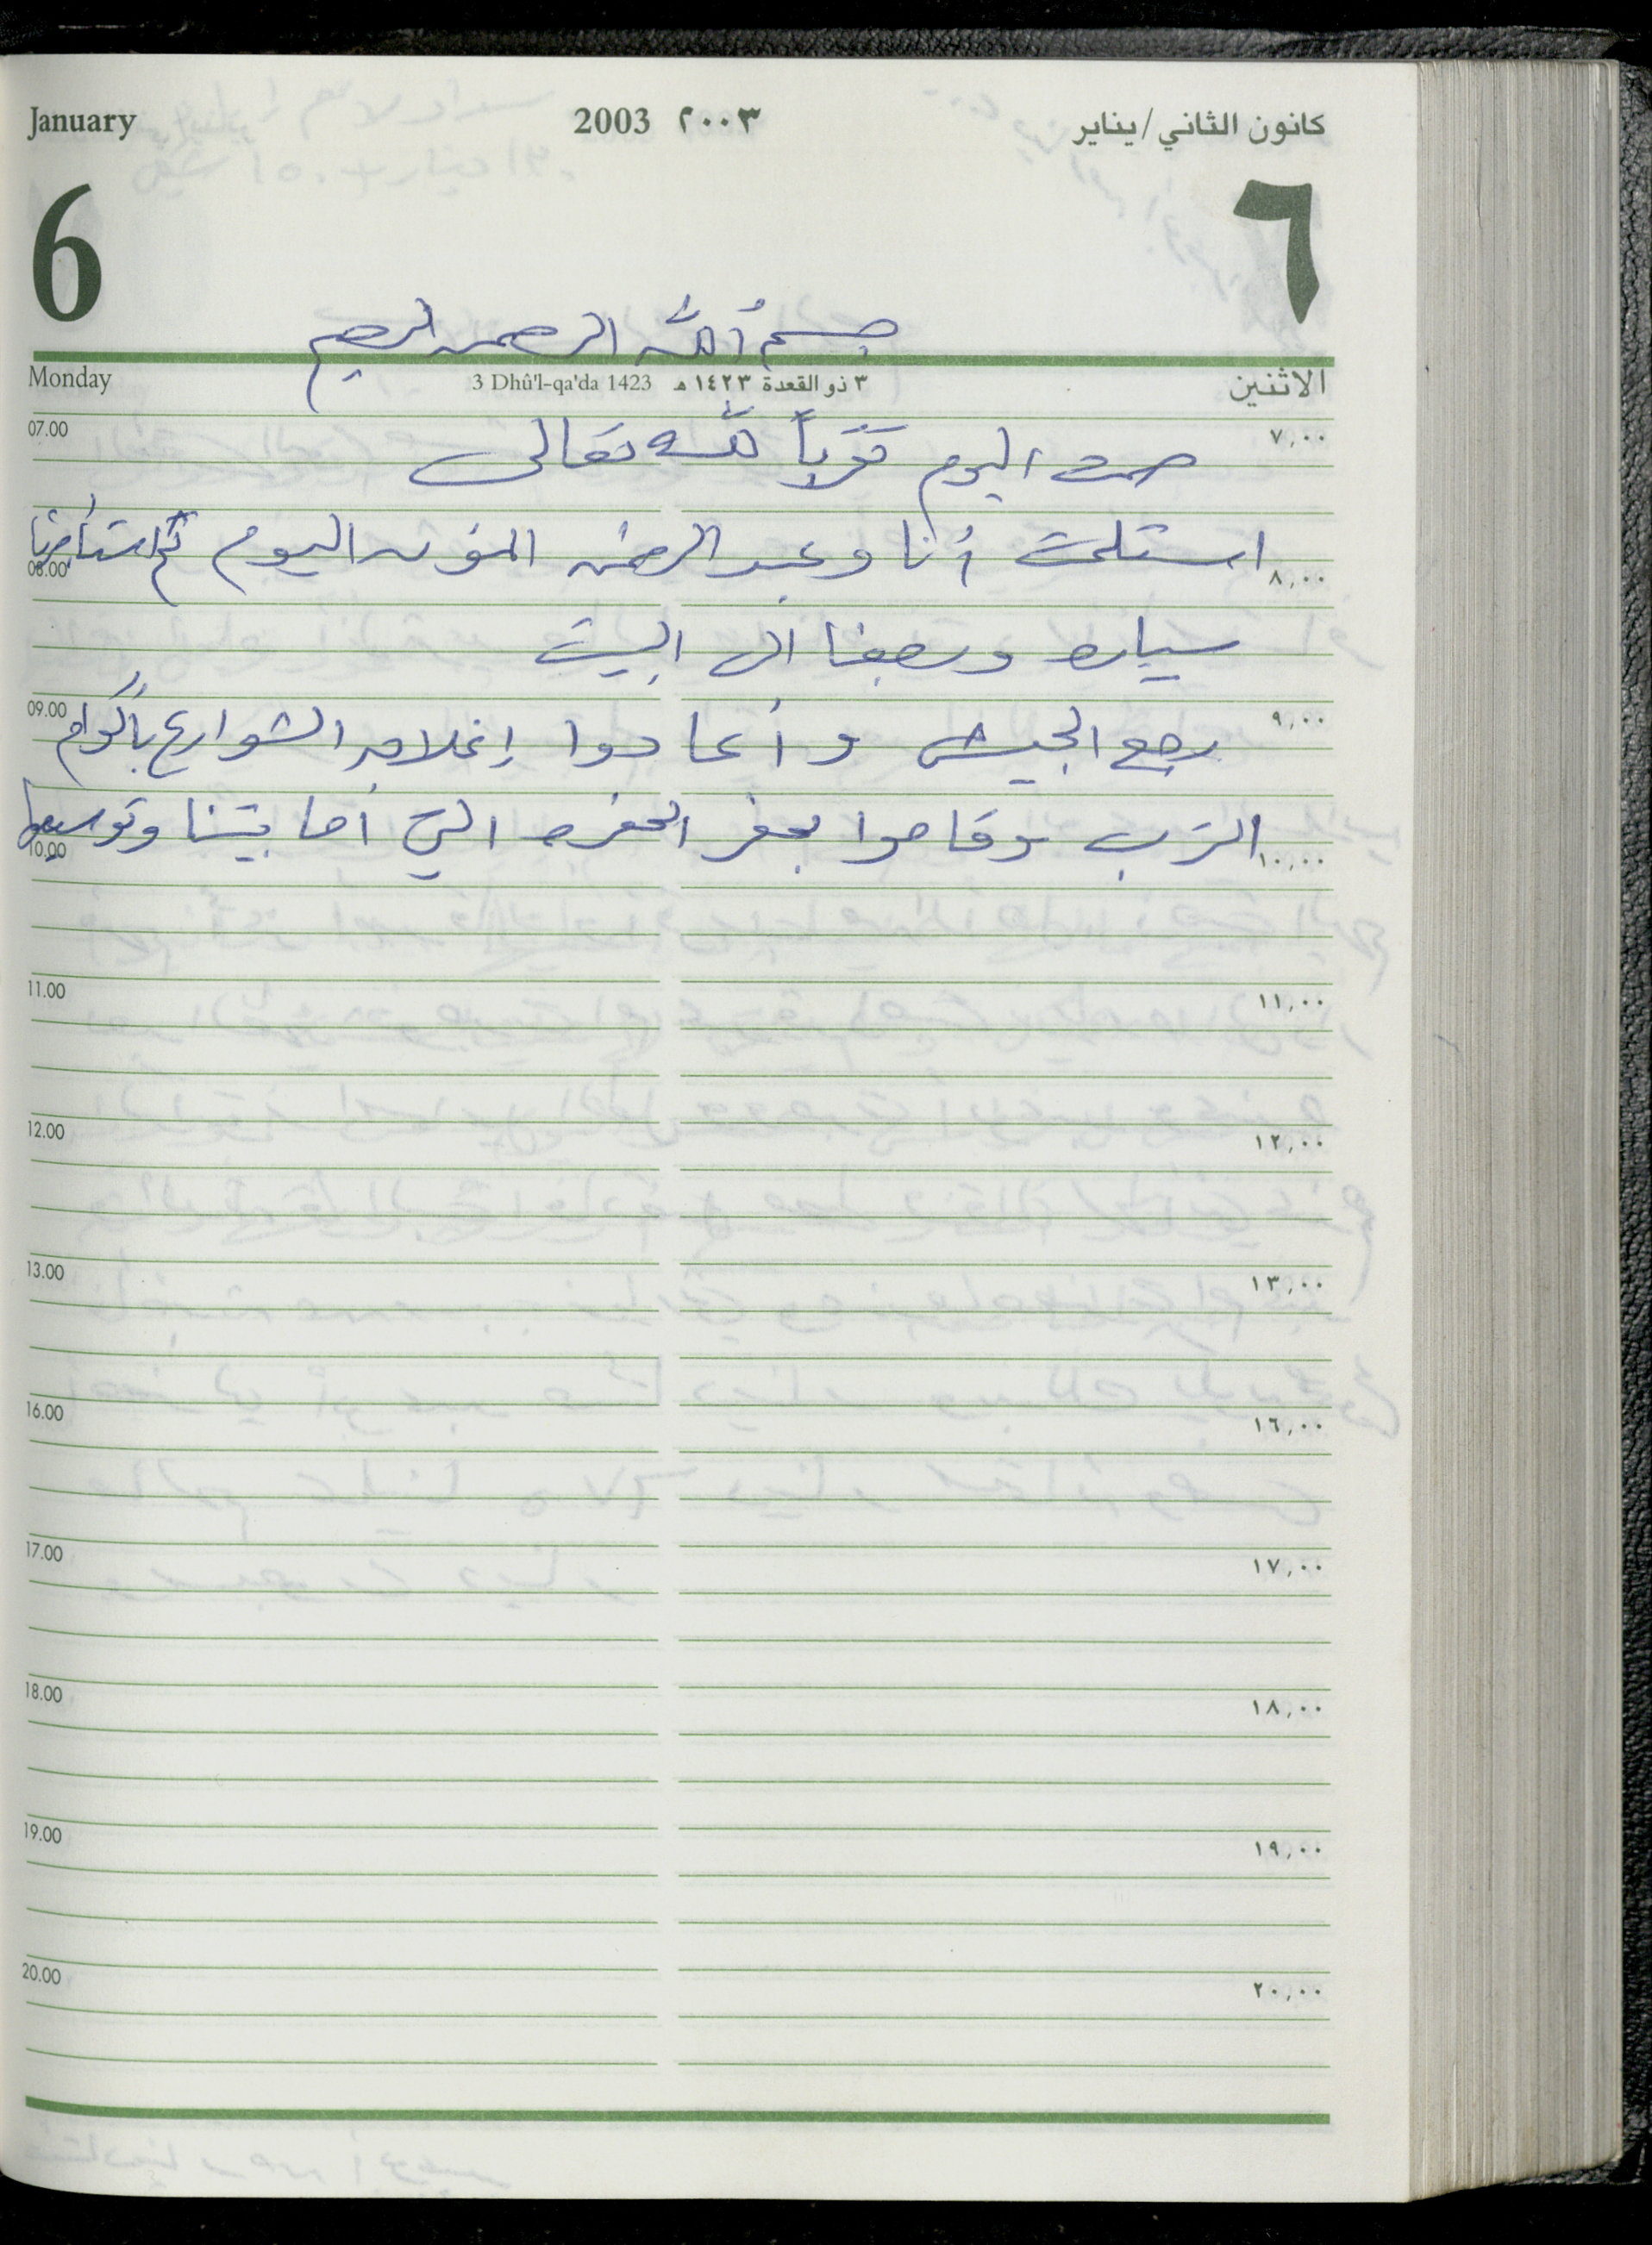 January 2003 ٢٠٠٣ كانون الثاني/يناير
6 ٦
بسم الله الرحمن الرحيم
Monday 3 Dhû'l-qa'da 1423 ٣ ذو القعدة ١٤٢٣ هـ الاثنين
07.00 ٧,٠٠
صمت اليوم تقرباً لله تعالى
استلمت أنا وعبد الرحمن المؤن اليوم ثم استأجرنا
08.00 ٨,٠٠
سياره ورجعنا الى البيت
09.00 ٩,٠٠
رجع الجيش و أعادوا إغلاق الشوارع بأكوام
الترب وقاموا بحفر الحفره التي أمام بيتنا وتوسيعها
10.00 ١٠,٠٠
11.00 ١١,٠٠
12.00 ١٢,٠٠
13.00 ١٣,٠٠
16.00 ١٦,٠٠
17.00 ١٧,٠٠
18.00 ١٨,٠٠
19.00 ١٩,٠٠
20.00 ٢٠,٠٠